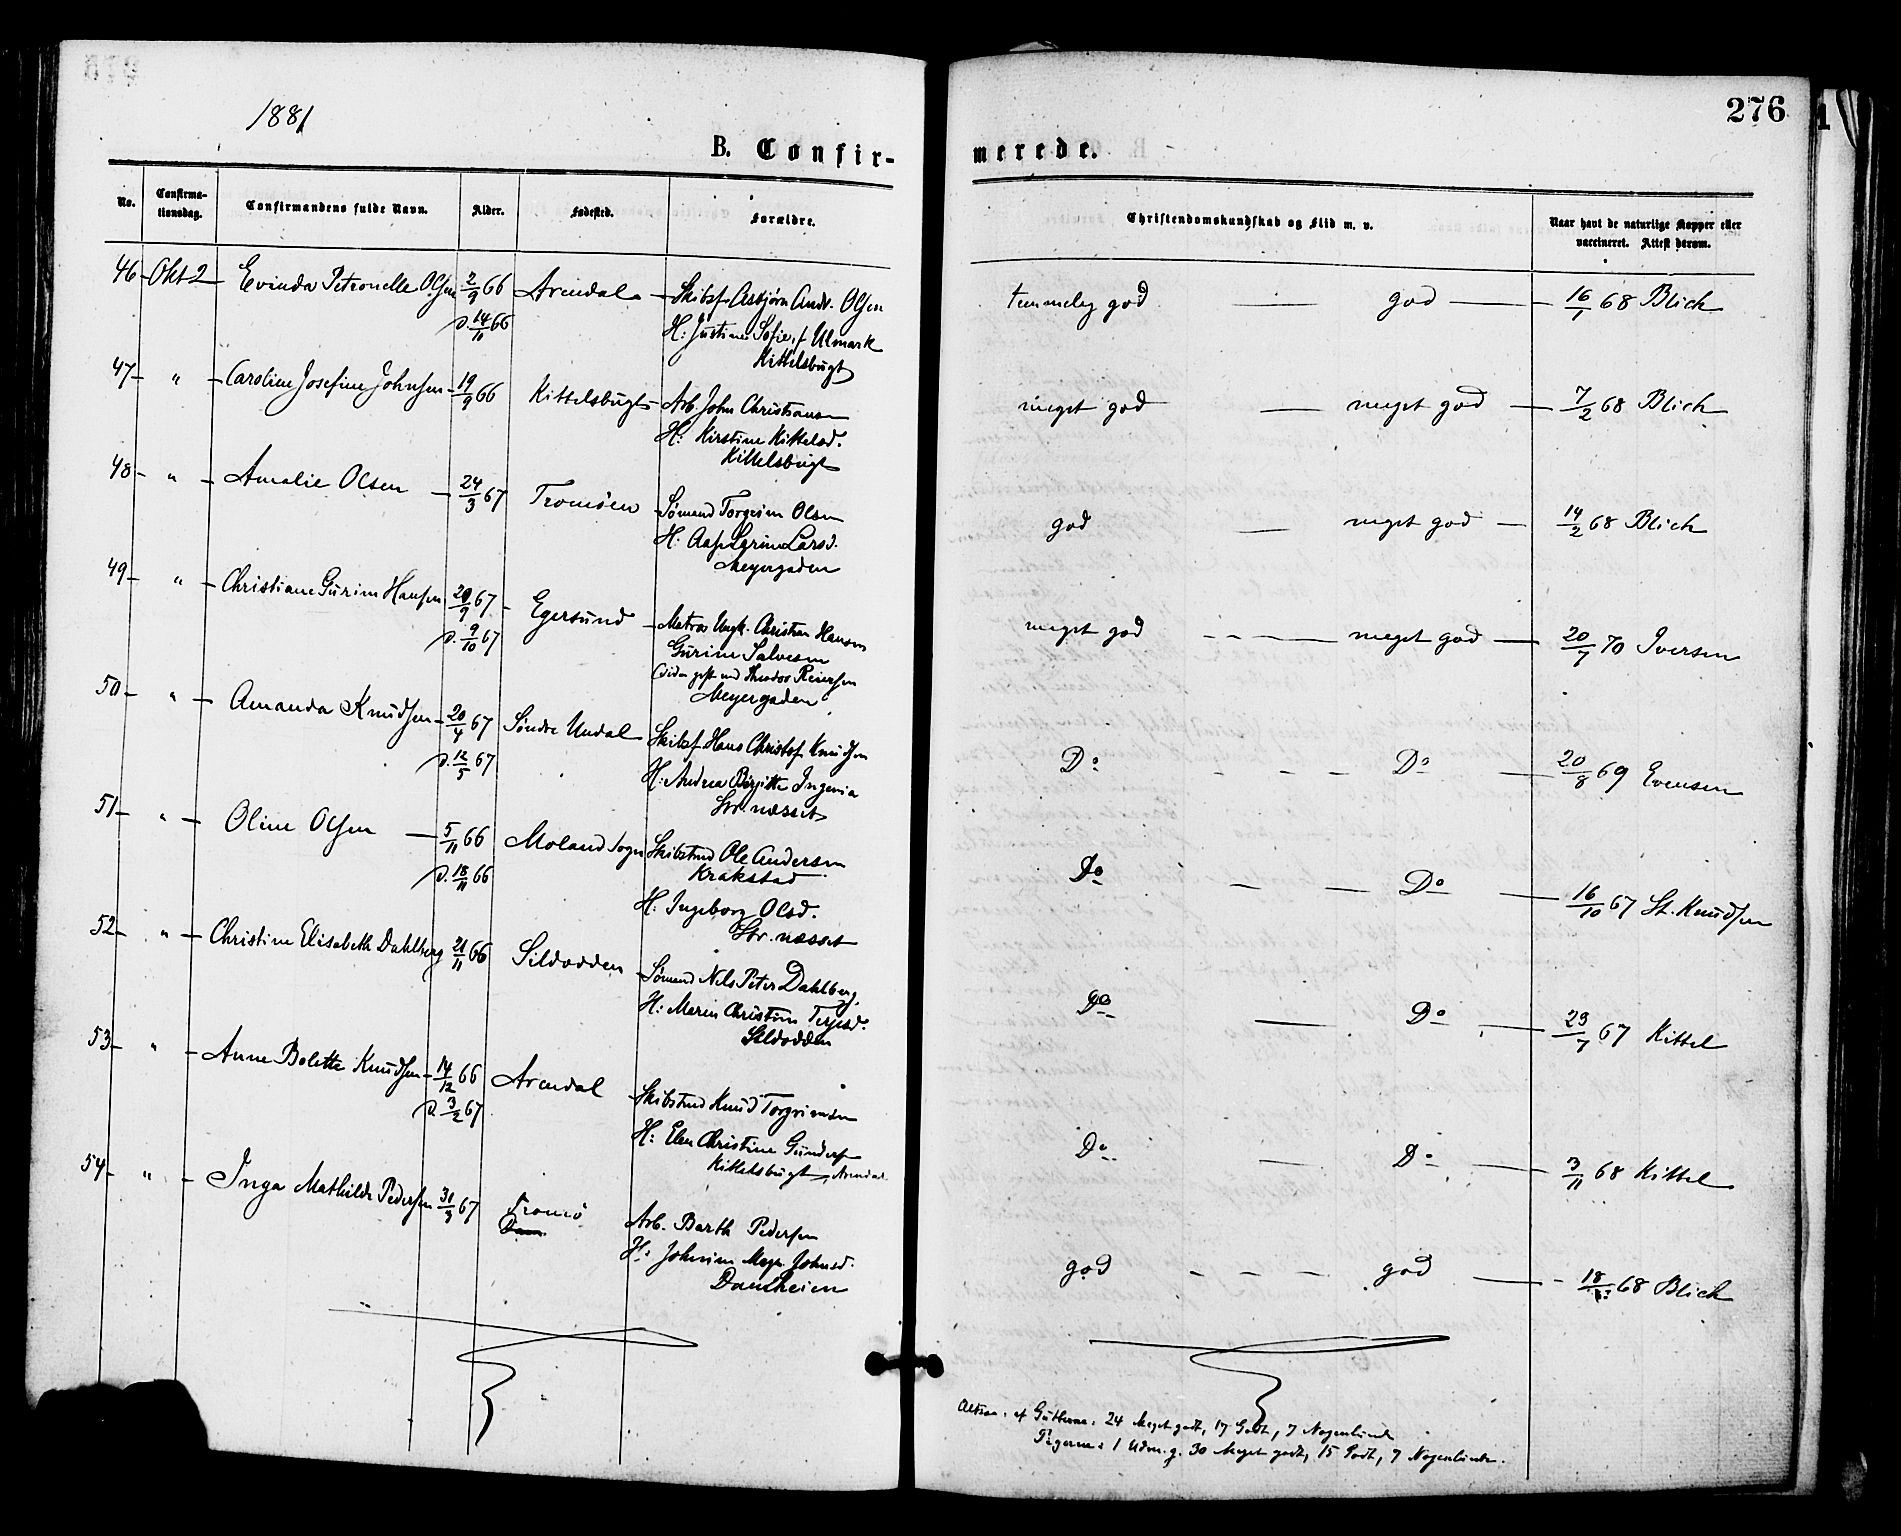 1881
276
B. Confir-
merede.
No.
Confirma-
tionsdag.
Confirmandens fulde Navn.
Alder.
Fødested.
Forældre.
Christendomskundskab og Flid m. v.
Naar havt de naturlige Kopper eller
vaccineret. Attest derom.
46 - Okt 2 - Evinda Petronelle Olsen 2/9 66 Arendal - Skibsf. Asbjørn Andr. Olsen
d. 14/11 66 H: Justine Sofie, f Ulmark
Kittelsbugt
temmelig god — god — 16/1 68 Blich
47 - " - Caroline Josefine Johnsen - 19/9 66 Kittelsbugt - Arb. John Christiansen
H: Kirstine Kittelsd.
Kittelsbugt
meget god — meget god — 7/2 68 Blich
48 - " - Amalie Olsen - 24/3 67 Tromøen Sømand Torgrim Olsen
H: Larsd.
Meyergaden
god — meget god — 14/2 68 Blich
49 - " - Christiane Gurine Hansen 29/9 67 - Egersund - Matros Ungk. Christian Hansen
d. 9/10 67 Gurine Salvesen
(siden gift med Theodor Reiersen
Meyergaden
meget god - - - — meget god — 20/7 70 Iversen
50 - " - Amanda Knudsen - 20/4 67 Søndre Undal Skibsf Hans Christof Knudsen
d. 12/5 67 H: Andrea Birgitte Ingeria
Str. næsset
Do - - - Do — 20/8 69 Evensen
51 - " - Oline Olsen — 5/11 66 Moland Sogn Skibstmd Ole Andersen
d. 18/11 66 Krakstad
H: Ingeborg Olsd.
Str. næsset
Do - — Do — 16/10 67 St. Knudsen
52 - " - Christine Elisabeth Dahlberg 21/11 66 Sildodden - Sømand Nils Peter Dahlberg,
H: Maren Christine Terjesd.
Sildodden
Do — Do — 23/7 67 Kittel
53 - " - Anne Bolette Knudsen - 14/12 66 Arendal Skibstmd Knud Torgrimsen
d. 3/2 67 H: Elen Christine Gunders
Kittelsbugt, Arendal
Do — Do — 3/11 68 Kittel
54 - " - Inga Mathilde Pedersen 31/3 67 Tromø Arb. Barth Pedersen
H: Johnsd.
Damheien
god - - - god — 18/ 68 Blich
Altsaa: af Gutterne: 24 Meget godt, 17 Godt, 7 Nogenlunde
Pigerne: 1 Udm. g. 30 Meget godt, 15 Godt, 7 Nogenlunde.